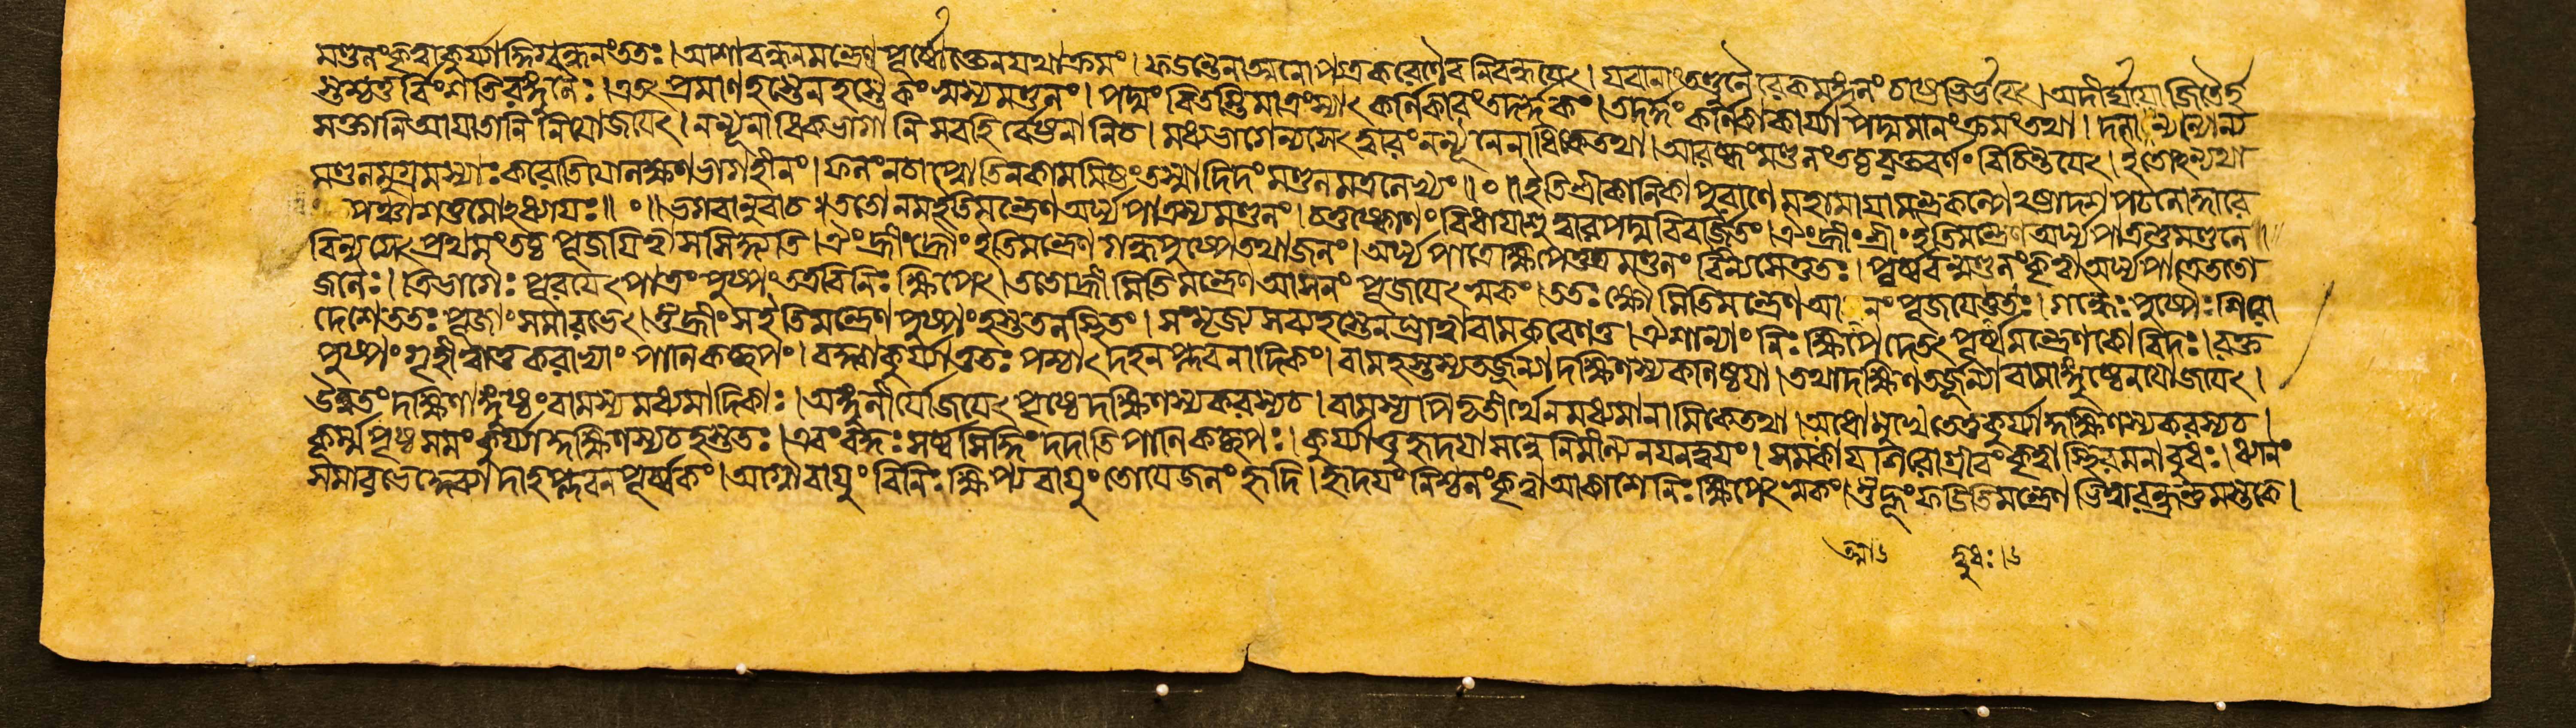 মণ্ডলং কৃত্বা কুর্য্যাদ্দিগ্বন্ধনং ততঃ। আশাবন্ধনমন্ত্রেণ পূর্ব্বোক্তেন যথাক্রমং। ফডন্তেনাত্মনো করেণৈব নিবন্ধয়েৎ। যবানাং তণ্ডুলৈরেকমঙ্গুলং চাষ্টভির্ভবেৎ। অদীর্ঘযোজিতৈর্হ
স্তশ্চতুর্বিংশতিরঙ্গুলৈঃ। এতৎ প্রমাণহস্তেন হস্তৈকং মণ্ডলং। পদ্মং বিতস্তিমাত্রং স্যাৎ কর্ণিকারং তদর্দ্ধকং। তদর্দ্ধং কর্ণিকা কার্য্যা পদ্মমানং ক্রমং তথা। দলান্যন্যোন্য
সক্তানি আয়াতানি নিযোজয়েৎ। ন ন্যূনাধিকভাগানি সবহির্বেষ্টনানি চ। মধ্যভাগে ন্যসেৎ দ্বারং ন ন্যূনে নাধিকে তথা। আরব্ধং মণ্ডলং তচ্চ রক্তবর্ণং বিচিন্তয়েৎ। ইতোঽন্যথা
মণ্ডলমুগ্রমস্যাঃ করোতি যো লক্ষণভাগহীনং। ফলং ন চাপ্নোতি ন কামমিষ্টং তস্মাদিদং মণ্ডলমত্র লেখ্যং॥০॥ইতি শ্রীকালিকাপুরাণে মহামায়ামন্ত্রকল্পেঽষ্টাদশপটলোদ্ধারে
পঞ্চাশত্তমোঽধ্যায়ঃ॥০॥ভগবানুবাচ॥ততো নমইতি মন্ত্রেণ অর্ঘ্যপাত্রস্য মণ্ডলং। চতুষ্কোণং বিধায়াশু দ্বারপদ্মবিবর্জিতং। ঐং হ্রীং শ্রীং ইতি মন্ত্রেণ অর্ঘ্যপাত্রন্তু মণ্ডলে॥
বিন্যসেৎ প্রথমং তচ্চ পূজয়িত্বা সসিদ্ধ্যতি। ঐং হ্রীং হ্রৌং ইতি মন্ত্রেণ গন্ধপুষ্পে তথা জলং। অর্ঘ্যপাত্রে ক্ষিপেত্তত্র মণ্ডলং বিন্যসেত্ততঃ। পূর্ব্ববন্মণ্ডলং কৃত্বা অর্ঘ্যপাত্রে ততো
জলৈঃ। ত্রিভাগৈঃ পূরয়েৎ পাত্রং পুষ্পং তত্র বিনিঃক্ষিপেৎ। ততো হ্রীমিতি মন্ত্রেণ আসনং পূজয়েৎ স্বকং। ততঃ ক্ষৌমিতি মন্ত্রেণ পূজয়েত্ততঃ। গন্ধৈঃ পুষ্পৈঃ শিরো
দেশে ততঃ পূজাং সমারভেৎ। ওঁ হ্রীং সইতি মন্ত্রেণ পুষ্পং হস্ততলস্থিতং। সংমৃজ্য সব্যহস্তেন ঘ্রাত্বা বামকরেণ তু। ঐশান্যাং নিঃক্ষিপেদেতৎ পূর্ব্বমন্ত্রেণ কোবিদঃ। রক্ত
পুষ্পং গৃহীত্বা তু করাভ্যাং পাণিকচ্ছপং। বদ্ধ্বা কুর্য্যাত্ততঃ পশ্চাৎ দহনপ্লবনাদিকং। বামহস্তস্য তর্জন্যা দক্ষিণস্য কনিষ্ঠয়া। তথা দক্ষিণতর্জন্যা বামাঙ্গুষ্ঠেন যোজয়েৎ।
উন্নতং দক্ষিণাঙ্গুষ্ঠং বামস্য মধ্যমাদিকাঃ। অঙ্গুলীর্যোজয়েৎ পৃষ্ঠে দক্ষিণস্য করস্য চ। বামস্য পিতৃতীর্থেন মধ্যমানামিকে তথা। অধোমুখে তে তু কুর্য্যাদ্দক্ষিণস্য করস্য চ।
কূর্ম্মপৃষ্ঠসমং কুর্য্যাদ্দক্ষিণস্য চ হস্ততঃ। এবং বদ্ধঃ সর্ব্বসিদ্ধিং দদাতি পাণিকচ্ছপঃ। কুর্য্যাত্তু হৃদয়াসন্নে নিমীল্য নয়নদ্বয়ং। সমকায়শিরোগ্রীবং কৃত্বা স্থিরমনা বুধঃ। ধ্যানং
সমারভেদ্দেব্যা দাহপ্লবনপূর্ব্বকং। অগ্নৌ বায়ুং বিনিঃক্ষিপ্য বায়ুং তোয়ে জলং হৃদি। হৃদয়ং নিশ্চলং কৃত্বা আকাশে নিঃক্ষিপেৎ স্বকং। ওঁ হ্রূং ফডিতি মন্ত্রেণ ভিত্ত্বা রন্ধ্রন্তু মস্তকে।